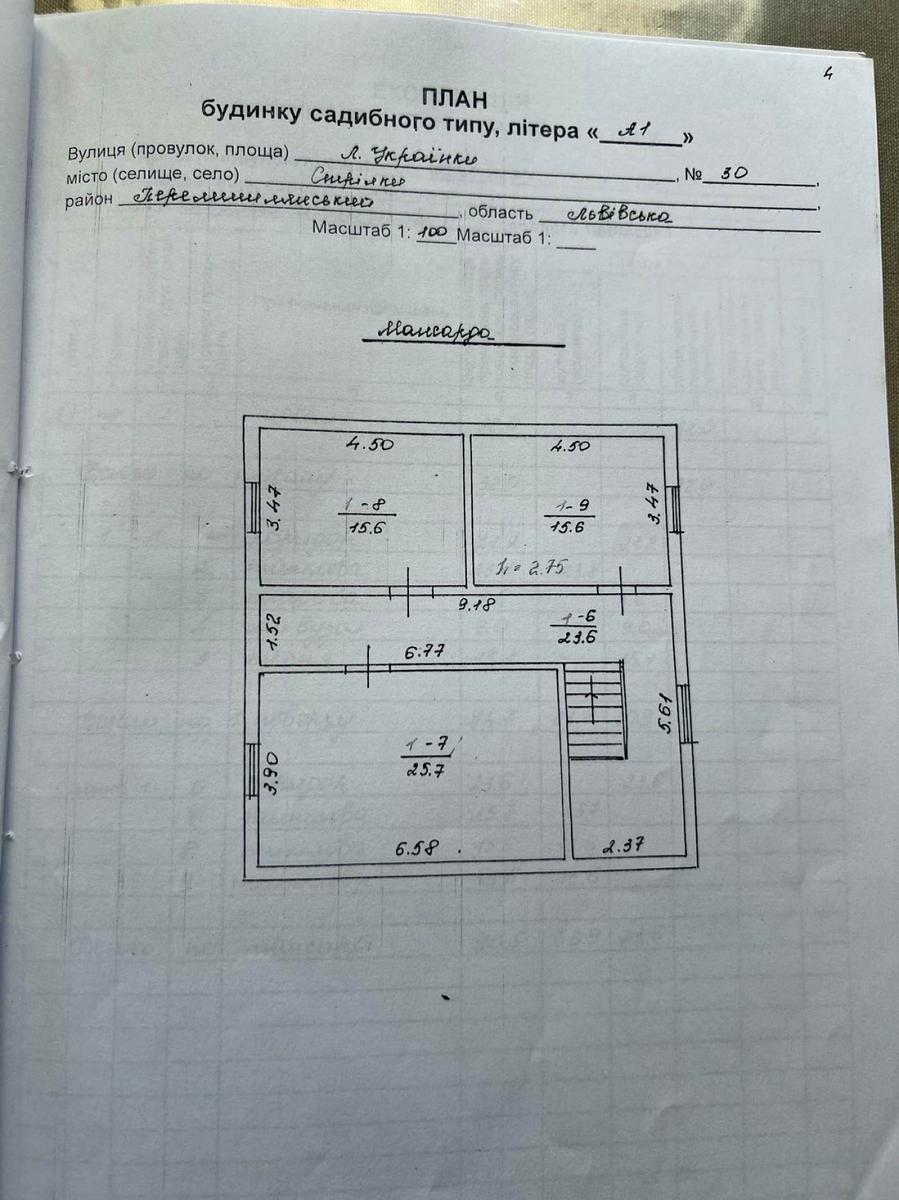 4
ПЛАН
будинку садибного типу, літера « А1 »
Вулиця (провулок, площа) Л. Українки, № 30,
місто (селище, село) Стрілки,
район Перемишлянський, область Львівська
Масштаб 1: 100 Масштаб 1:
Мансарда
4.50 4.50
3.47 1-8 15.6 1-9 15.6 3.47
h = 2.75
9.18
1.52 1-6 23.6
6.77
5.61
3.90 1-7 25.7
6.58 2.37